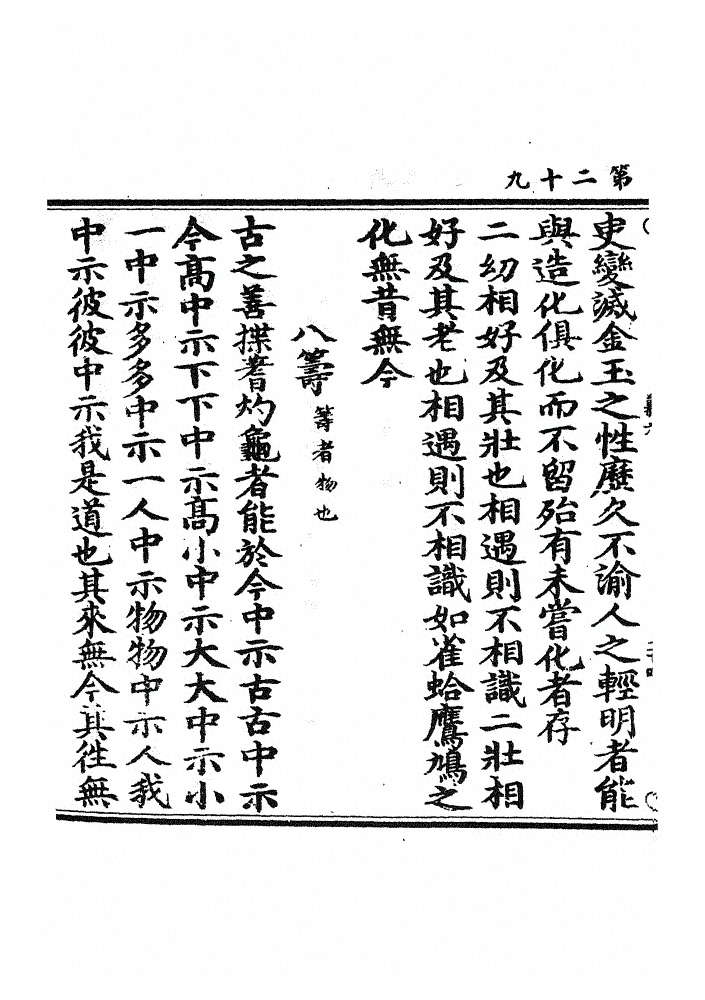 第二十九
吏變滅金玉之性歷久不渝人之輕明者能
與造化俱化而不留殆有未嘗化者存
二幼相好及其壯也相遇則不相識二壯相
好及其老也相遇則不相識如雀蛤鷹鳩之
化無昔無今
八籌 籌者物也
古之善揲蓍灼龜者能於今中示古古中示
今高中示下下中示高小中示大大中示小
一中示多多中示一人中示物物中示人我
中示彼彼中示我是道也其來無今其徃無